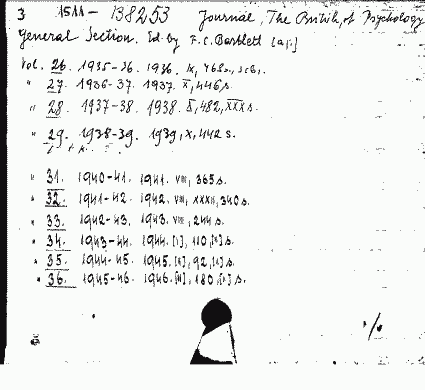 3 15AA - 138253 Journal, The British, of Psychology
General Section. Ed. by F. C. Bartlett [a.o.]
Vol. 26. 1935-36. 1936. IX, 468 s.
" 27. 1936-37. 1937. X, 446 s.
" 28. 1937-38. 1938. X, 482, XXX s.
" 29. 1938-39. 1939, X, 442 s.
" 31. 1940-41. 1941. VIII, 365 s.
" 32. 1941-42. 1942, VIII, XXXII, 340 s.
" 33. 1942-43. 1943. VIII, 244 s.
" 34. 1943-44. 1944. [1], 110, [1] s.
" 35. 1944-45. 1945. [1], 92, [1] s.
" 36. 1945-46. 1946. [1], 180, [1] s.